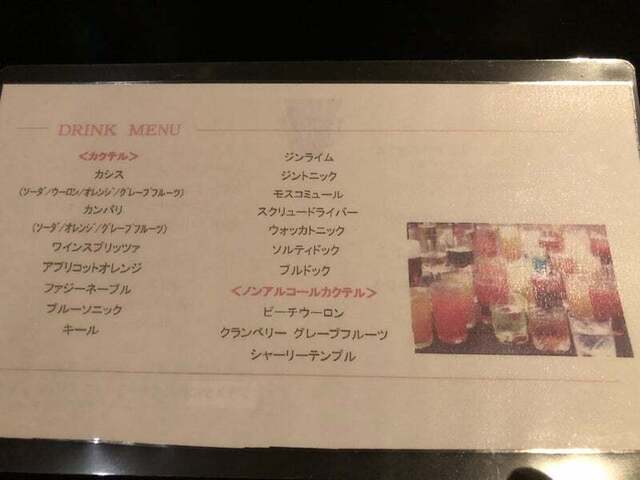 DRINK MENU
<カクテル>
カシス
(ソーダ/ウーロン/オレンジ/グレープフルーツ)
カンパリ
(ソーダ/オレンジ/グレープフルーツ)
ワインスプリッツァ
アプリコットオレンジ
ファジーネーブル
ブルーソニック
キール
ジンライム
ジントニック
モスコミュール
スクリュードライバー
ウォッカトニック
ソルティドック
ブルドック
<ノンアルコールカクテル>
ピーチウーロン
クランベリー グレープフルーツ
シャーリーテンプル